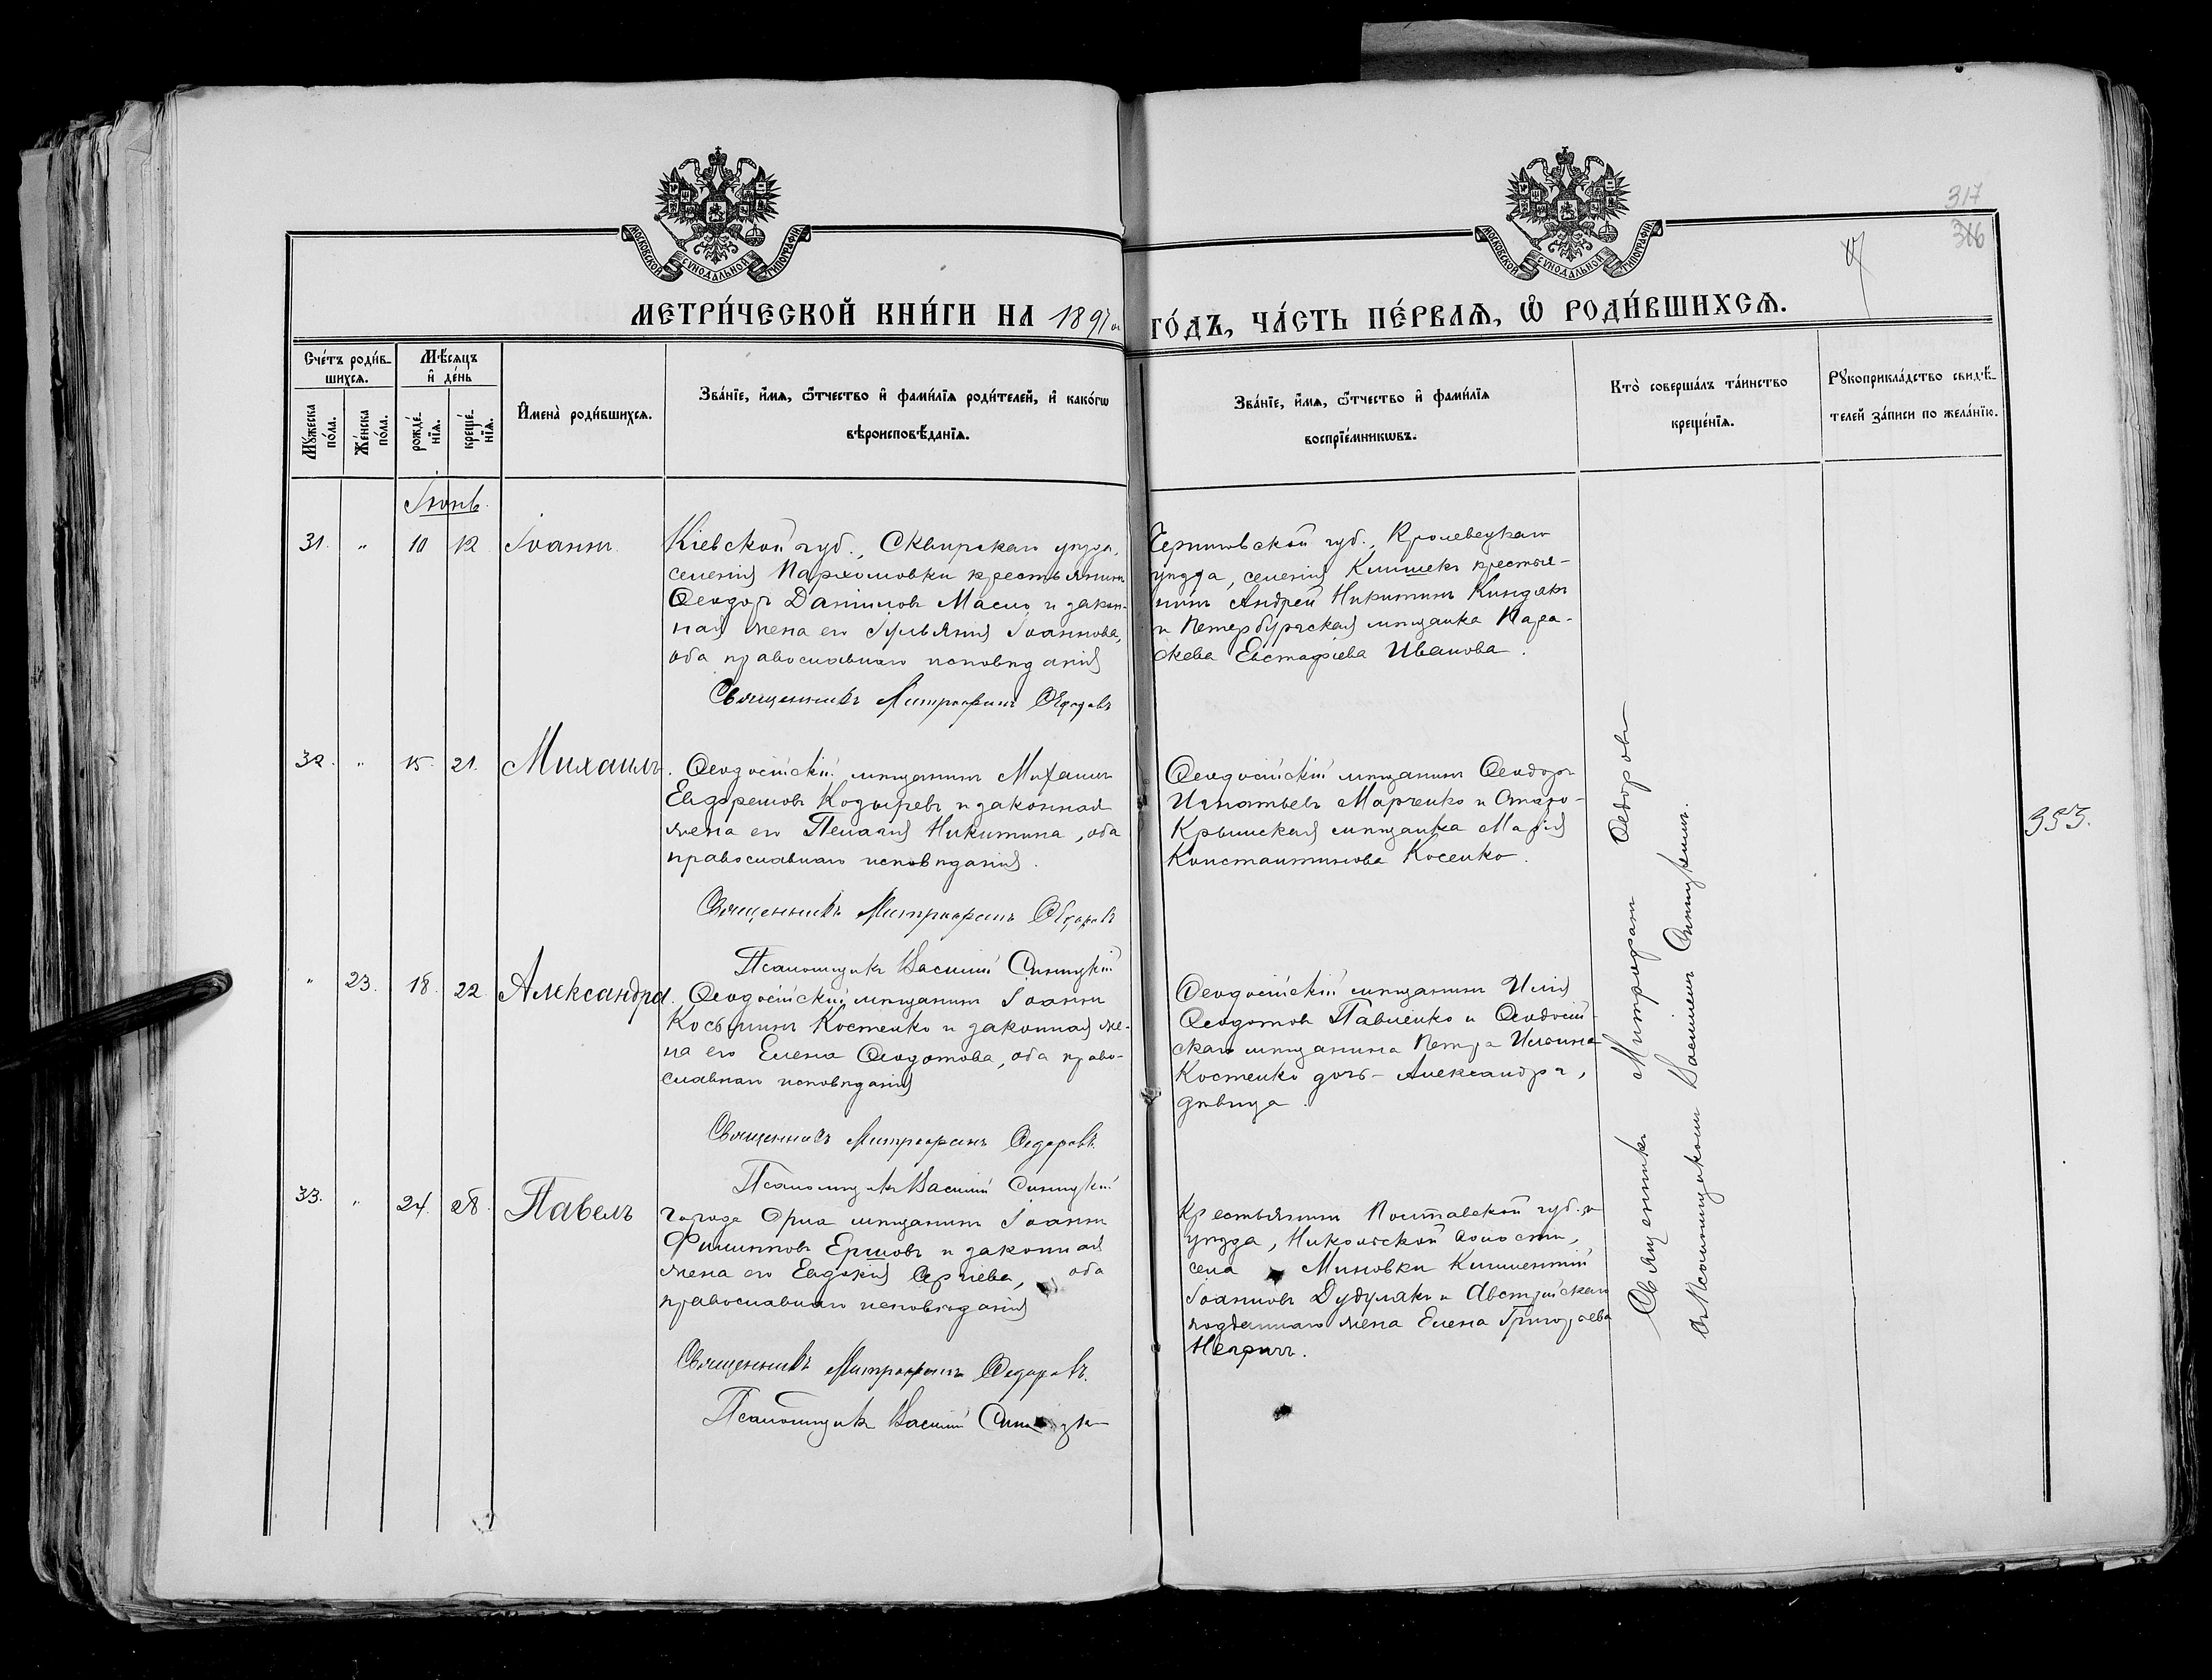 317
316
МОСКОВСКОЙ СѴНОДАЛЬНОЙ ТИПОГРАФІИ
МОСКОВСКОЙ СѴНОДАЛЬНОЙ ТИПОГРАФІИ
МЕТРИ́ЧЕСКОЙ КНИ́ГИ НА 1897 ГО́ДЪ, ЧА́СТЬ ПЕ́РВАѦ, Ѡ҆ РОДИ́ВШИХСѦ.
Сче́тъ роди́в-
шихсѧ.
Мꙋ́жеска по́ла.
Же́нска по́ла.
Мѣ́сѧцъ и҆ де́нь
рожде́-
нїѧ.
креще́-
нїѧ.
И҆мена̀ роди́вшихсѧ.
Зва́нїе, и҆́мѧ, ѻ҆́тчество и҆ фами́лїѧ роди́телей, и҆ како́гѡ
вѣроисповѣ́данїѧ.
Зва́нїе, и҆́мѧ, ѻ҆́тчество и҆ фами́лїѧ
воспрїе́мникѡвъ.
Кто̀ соверша́лъ та́инство
креще́нїѧ.
Рꙋкоприкла́дство свидѣ́-
телей за́писи по жела́нїю.
Іюнь.
31. " 10 12 Іоаннъ.
Кіевской губ., Сквирскаго уѣзда,
селенія Пархомовки крестьянинъ
Ѳеодоръ Даниловъ Масло и закон-
ная жена его Іульянія Іоаннова,
оба православнаго исповѣданія
Священникъ Митрофанъ Ѳедоровъ
Черниговской губ., Кролевецкаго
уѣзда, селенія Клишекъ крестья-
нинъ Андрей Никитинъ Киндякъ
и Петербургская мѣщанка Пара-
скева Евстафіева Иванова.
32. " 15. 21. Михаилъ.
Ѳеодосійскій мѣщанинъ Михаилъ
Евдоремовъ Козыревъ и законная
жена его Пелагія Никитина, оба
православнаго исповѣданія.
Священникъ Митрофанъ Ѳедоровъ
Псаломщикъ Василій Синицкій
Ѳеодосійскій мѣщанинъ Ѳеодоръ
Игнатьевъ Марченко и Старо-
Крымская мѣщанка Марія
Константинова Косенко.
353.
" 23. 18. 22. Александра.
Ѳеодосійскій мѣщанинъ Іоаннъ
Косьминъ Костенко и законная же-
на его Елена Ѳеодотова, оба право-
славнаго исповѣданія
Священникъ Митрофанъ Ѳедоровъ.
Псаломщикъ Василій Синицкій
Ѳеодосійскій мѣщанинъ Илія
Ѳеодотовъ Павленко и Ѳеодосій-
скаго мѣщанина Петра Ильина
Костенко дочь - Александра,
дѣвица.
33. " 24. 28. Павелъ
города Орла мѣщанинъ Іоаннъ
Филипповъ Ершовъ и законная
жена его Евдокія Сергіева, оба
православнаго исповѣданія
Священникъ Митрофанъ Ѳедоровъ.
Псаломщикъ Василій
Крестьянинъ Полтавской губ. и
уѣзда, Никольской волости,
села Миновки Климентій
Іоанновъ Дудулякъ и Австрійскаго
подданнаго жена Елена Григорьева
Священникъ Митрофанъ Ѳедоровъ
съ Псаломщикомъ Василіемъ Синицкимъ.